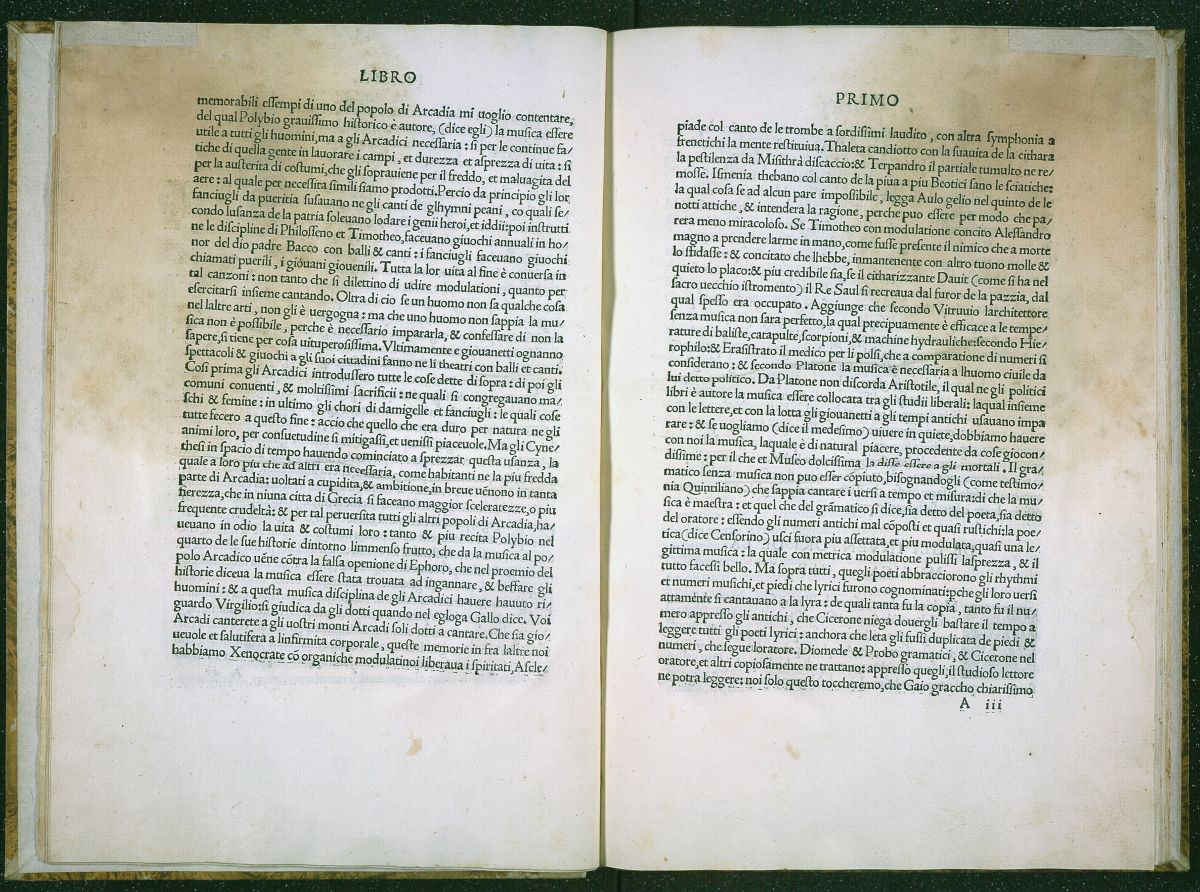 LIBRO
memorabili eſſempi di uno del popolo di Arcadia mi uoglio contentare,
del qual Polybio grauiſſimo hiſtorico è autore, (dice egli) la muſica eſſere
utile a tutti gli huomini, ma a gli Arcadici neceſſaria: ſi per le continue fa/
tiche di quella gente in lauorare i campi, et durezza et aſprezza di uita: ſi
per la auſterita di coſtumi, che gli soprauiene per il freddo, et maluagita del
aere: al quale per neceſſita ſimili ſiamo prodotti. Percio da principio gli lor
fanciugli da pueritia ſuſauano ne gli canti de glhymni peani, co quali ſe/
condo luſanza de la patria ſoleuano lodare i genii heroi, et iddii: poi inſtrutti
ne le diſcipline di Philoſſeno et Timotheo, faceuano giuochi annuali in ho/
nor del dio padre Bacco con balli & canti: i fanciugli faceuano giuochi
chiamati puerili, i giouani giouenili. Tutta la lor uita al fine è conuerſa in
tal canzoni: non tanto che ſi dilettino di udire modulationi, quanto per
eſercitarſi inſieme cantando. Oltra di cio ſe un huomo non ſa qualche coſa
nel laltre arti, non gli è uergogna: ma che uno huomo non ſappia la mu/
ſica non è poſſibile, perche è neceſſario impararla, & confeſſare di non la
ſapere, ſi tiene per coſa uituperoſiſſima. Vltimamente e giouanetti ognanno
ſpettacoli & giuochi a gli ſuoi cittadini fanno ne li theatri con balli et canti.
Coſi prima gli Arcadici introduſſero tutte le coſe dette di ſopra: di poi gli
comuni conuenti, & moltiſſimi ſacrificii: ne quali ſi congregauano ma/
ſchi & femine: in ultimo gli chori di damigelle et fanciugli: le quali coſe
tutte fecero a queſto fine: accio che quello che era duro per natura ne gli
animi loro, per conſuetudine ſi mitigaſſi, et ueniſſi piaceuole. Ma gli Cyne/
theſi in ſpacio di tempo hauendo cominciato a ſprezzar queſta uſanza, la
quale a loro piu che ad altri era neceſſaria, come habitanti ne la piu fredda
parte di Arcadia: uoltati a cupidita, & ambitione, in breue uēnono in tanta
fierezza, che in niuna citta di Grecia ſi faceano maggior ſceleratezze, o piu
frequente crudeltà: & per tal peruerſita tutti gli altri popoli di Arcadia, ha/
ueuano in odio la uita & coſtumi loro: tanto & piu recita Polybio nel
quarto de le ſue hiſtorie dintorno limmenſo frutto, che da la muſica al po/
polo Arcadico uēne cōtra la falſa openione di Ephoro, che nel proemio del
hiſtorie diceua la muſica eſſere ſtata trouata ad ingannare, & beffare gli
huomini: & a queſta muſica diſciplina de gli Arcadici hauere hauuto ri/
guardo Virgilio: ſi giudica da gli dotti quando nel egloga Gallo dice. Voi
Arcadi canterete a gli uoſtri monti Arcadi ſoli dotti a cantare. Che ſia gio/
ueuole et salutifera a linfirmita corporale, queſte memorie in fra laltre noi
habbiamo Xenocrate cō organiche modulatinoi liberaua i ſpiritati, Aſcle/
PRIMO
piade col canto de le trombe a ſordiſſimi laudito, con altra ſymphonia a
frenetichi la mente reſtituiua. Thaleta candiotto con la ſuauita de la cithara
la peſtilenza da Miſithrà diſcaccio: & Terpandro il partiale tumulto ne re/
moſſe. Iſmenia thebano col canto de la piua a piu Beotiei ſano le ſciatiche:
la qual coſa ſe ad alcun pare impoſſibile, legga Aulo gelio nel quinto de le
notti attiche, & intendera la ragione, perche puo eſſere per modo che pa/
rera meno miracoloſo. Se Timotheo con modulatione concito Aleſſandro
magno a prendere larme in mano, come fuſſe preſente il nimico che a morte
lo sfidaſſe: & concitato che lhebbe, inmantenente con altro tuono molle &
quieto lo placo: & piu credibile ſia, ſe il citharizzante Dauit (come ſi ha nel
ſacro uecchio iſtromento) il Re Saul ſi recreaua dal furor de la pazzia, dal
qual ſpeſſo era occupato. Aggiunge che ſecondo Vitruuio larchitettore
ſenza muſica non ſara perfetto, la qual precipuamente è efficace a le tempe/
rature di baliſte, catapulte, ſcorpioni, & machine hydrauliche: ſecondo Hie/
rophilo: & Eraſiſtrato il medico per li polſi, che a comparatione di numeri ſi
conſiderano: & ſecondo Platone la muſica è neceſſaria a lhuomo ciuile da
lui detto politico. Da Platone non diſcorda Ariſtotile, il qual ne gli politici
libri è autore la muſica eſſere collocata tra gli ſtudii liberali: laqual inſieme
con le lettere, et con la lotta gli giouanetti a gli tempi antichi uſauano impa
rare: & ſe uogliamo (dice il medeſimo) uiuere in quiete, dobbiamo hauere
con noi la muſica, laquale è di natural piacere, procedente da coſe giocon/
diſſime: per il che et Muſeo dolciſſima la diſſe eſſere a gli mortali. Il gra/
matico ſenza muſica non puo eſſer cōpiuto, biſognandogli (come teſtimo/
nia Quintiliano) che ſappia cantare i uerſi a tempo et miſura: di che la mu/
ſica è maeſtra: et quel che del grāmatico ſi dice, ſia detto del poeta, ſia detto
del oratore: eſſendo gli numeri antichi mal cōpoſti et quaſi ruſtichi: la poe/
tica (dice Cenſorino) uſci fuora piu aſſettata, et piu modulata, quaſi una le/
gittima muſica: la quale con metrica modulatione puliſſi laſprezza, & il
tutto faceſſi bello. Ma ſopra tutti, quegli poeti abbracciorono gli rhythmi
et numeri muſichi, et piedi che lyrici furono cognominati: pche gli loro uerſi
attamente ſi cantauano a la lyra: de quali tanta fu la copia, tanto fu il nu/
mero appreſſo gli antichi, che Cicerone niega douergli baſtare il tempo a
leggere tutti gli poeti lyrici: anchora che leta gli fuſſi duplicata de piedi &
numeri, che ſegue loratore. Diomede & Probo gramatici, & Cicerone nel
oratore, et altri copioſamente ne trattano: appreſſo quegli, il ſtudioſo lettore
ne potra leggere: noi ſolo queſto toccheremo, che Gaio graccho chiariſſimo
A iii